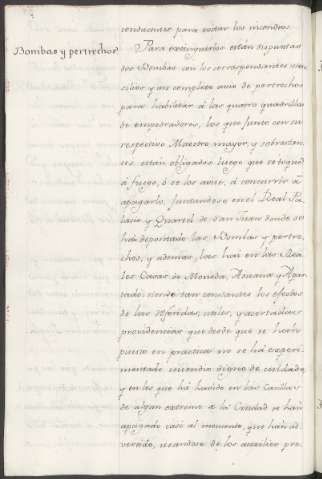 conducentes para evitar los incendios.
Bombas y pertrechos
Para extinguirlos están dispuestas
dos Bombas con los correspondientes uten-
cilios y un completo de pertrechos
para habilitar á las quatro quadrillas
de empedradores, los que junto con su
respectivo Maestro mayor, y sobrestan-
tes están obligados luego que se toque
á fuego, ó se les avise, á concurrir á
apagarlo, juntandose en el Real Pa-
lacio y Quartel de donde se
han depositado las Bombas y pertre-
chos, y ademas, los hai en las Rea-
les Casas de Moneda, Aduana y Apar-
tado, siendo tan constantes los efectos
de las referidas, utiles, y acertadas
providencias que desde que se han
puesto en practica no se há experi-
mentado incendio digno de cuidado,
y en los que há havido en las Casillas
de algun extremo de la Ciudad se han
apagado casi al momento, que han ad-
vertido, usandose de los auxilios pre-